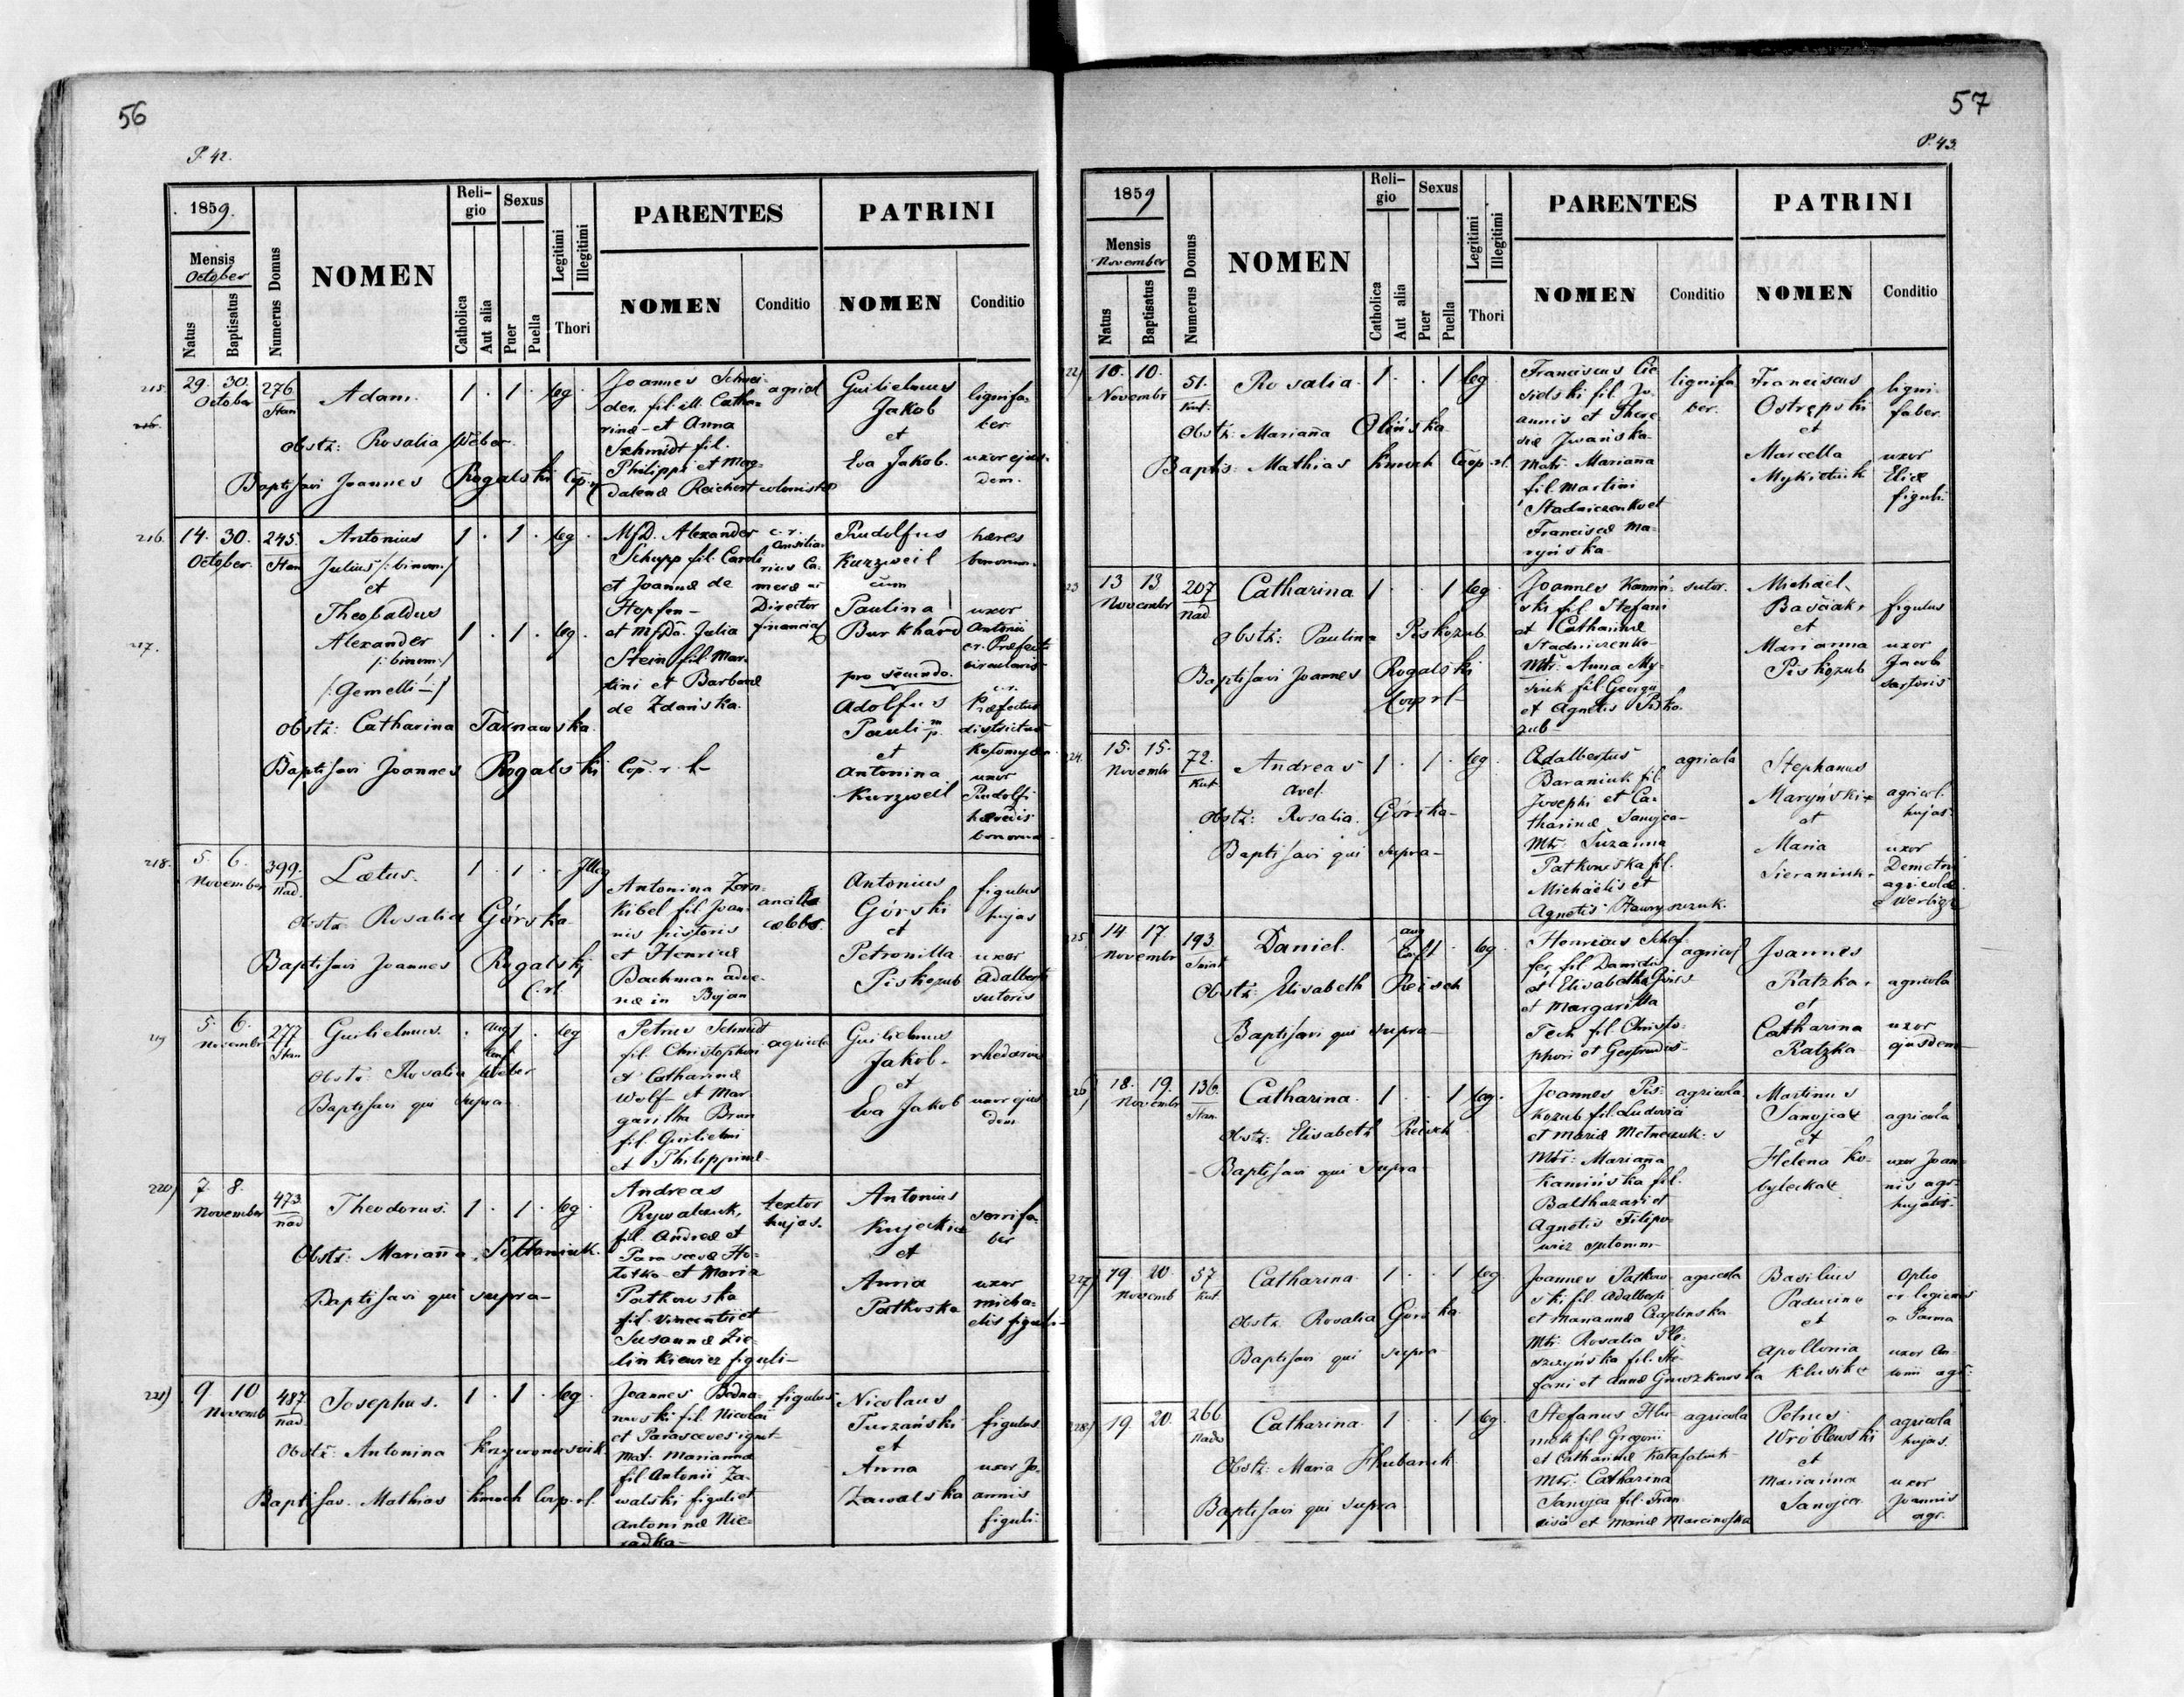 56
P. 42.
1859.
Mensis
October
Natus
Baptisatus
Numerus Domus
NOMEN
Reli-
gio
Catholica
Aut alia
Sexus
Puer
Puella
Legitimi
Illegitimi
Thori
PARENTES
NOMEN
Conditio
PATRINI
NOMEN
Conditio
215.
29. 30.
October
276
Stan
Adam.
1 . 1 . leg
Obstz: Rosalia Weber.
Baptisavi Joannes Rogalski
Joannes Schnei-
der, fil. ill. Catha-
rinæ et Anna
Schmidt fil.
Philippi et Mag-
dalenæ Reichert colonistæ
agricol
Guilielmus
Jakob
et
Eva Jakob.
lignifa-
ber
uxor ejus-
dem.
216.
14. 30.
October.
245.
Stan
Antonius
Julius /: binom:/
et
Theobaldus
Alexander
/: binom:/
/: Gemelli :/
1 . 1 . leg
217.
1 . 1 . leg.
Obstz: Catharina Tarnawska.
Baptisavi Joannes Rogalski
Alexander
Schupp fil. Caroli
et Joannæ de
Hopfen-
et Julia
Stein fil. Mar-
tini et Barbaræ
de Zdańska.
c. r.
Consilia-
rius Ca-
meræ
Director
financia
Rudolfus
Kurzweil
cum
Paulina
Burkhard
pro secundo.
Adolfus
Pauli
et
Antonina
Kurzweil
hæres
bonorum.
uxor
Antonii
c. r. Præfecti
circularis
c. r.
Præfectus
districtus
Kołomyæn.
uxor
Rudolfi
hæredis
bonorum
218.
5. 6.
November
399.
Nad.
Lætus.
1 . 1 . Illeg
Obstz: Rosalia Górska
Baptisavi Joannes Rogalski
C. rl.
Antonina
kibel fil. Joan-
nis pistoris
et Henricæ
Bachman adve-
næ in Bojan
ancilla
cælebs.
Antonius
Górski
et
Petronilla
Piskozub
figulus
hujas
uxor
Adalberti
sutoris
219
5. 6.
November
277
Stan
Guilielmus.
. aug. 1 . leg
conf.
Obstz: Rosalia Weber
Baptisavi qui supra
Petrus Schmidt
fil. Christophori
et Catharinæ
Wolf et Mar-
garitha Brun
fil. Guilielmi
et Philippinæ
agricola
Guilielmus
Jakob.
et
Eva Jakob
rhedarius
uxor ejus
dem
220)
7. 8.
November
473.
nad
Theodorus.
1 . 1 . leg
Obstz: Marianna Sołtaniuk.
Baptisavi qui supra
Andreas
Rywalczuk,
fil. Andreæ et
Parascevæ Ho-
łotko et Maria
Patkowska
fil. Vincentii et
Susannæ Zie-
linkiewicz figuli
textor
hujas.
Antonius
Kujecki
et
Anna
Patkoska
serrifa-
ber
uxor
Micha-
elis figuli
221)
9 10
Novemb
487
nad.
Josephus.
1 . 1 . leg.
Obstz: Antonina
Baptisav. Mathias Kmoch Coop. rl.
Joannes Bedna-
rowski fil. Nicolai
et Parasceves ignot-
Mat. Marianna
fil. Antonii Za-
walski figuli et
Antoninæ Nie-
radka
figulus
Nicolaus
Turzański
et
Anna
Zawalska
figulus
uxor Jo-
annis
figuli.
57
P. 43.
1859
Mensis
November
Natus
Baptisatus
Numerus Domus
NOMEN
Reli-
gio
Catholica
Aut alia
Sexus
Puer
Puella
Legitimi
Illegitimi
Thori
PARENTES
NOMEN
Conditio
PATRINI
NOMEN
Conditio
22)
10. 10.
Novembr
51.
Kut.
Rosalia.
1 . . 1 leg
Obstz: Marianna Olińska
Baptis: Mathias Kmoch Coop. rl.
Franciscus Cie-
sielski fil. Jo-
annis et There-
siæ Iwańska
Matr: Marianna
fil. Martini
Stadniczenko et
Franciscæ Ma-
ryńska.
lignifa
ber.
Franciscus
Ostrępski
et
Marcella
Mykietiuk
ligni-
faber
uxor
Eliæ
figuli
23
13 13
Novembr
207
Nad
Catharina
1 . . 1 leg
Obstz: Paulina Piskozub
Baptisavi Joannes Rogalski
Coop rl
Joannes Kamiń-
ski fil. Stefani
et Catharinæ
Stadniczenko
Mtr: Anna My-
siuk fil. Georgii
et Agnetis Pisko-
zub
sutor.
Michaël
Baściak
et
Marianna
Piskozub
figulus
uxor
Jacobi
sartoris
24.
15. 15.
Novemb
72.
Kut
Andreas
Avel.
1 . 1 . leg.
Obstz: Rosalia. Górska
Baptisavi qui supra
Adalbertus
Baraniuk fil.
Josephi et Ca-
tharinæ Sanojca
Mtr: Suzanna
Patkowska fil.
Michaëlis et
Agnetis Hawryszczuk.
agricola
Stephanus
Maryński
et
Maria
Sieraniuk
agricol.
hujas
uxor
Demetri
agricolæ
e Werbiąż
25
14 17
Novembr
193.
Daniel.
aug
conf 1 . leg
Obstz: Elisabeth Reisch
Baptisavi qui supra
Henricus Schef-
fer, fil Danielis
et Elisabetha
et Margaritta
Tech fil Christo-
phori et Gertrudis
agricol
Joannes
Ratzka.
et
Catharina
Ratzka
agricola
uxor
ejusdem
26)
18. 19.
Novembr
136.
Stan.
Catharina.
1 . . 1 leg.
Obstz: Elisabeth Reisch
Baptisavi qui supra
Joannes Pis-
kozub fil. Ludovici
et Mariæ Melneczuk.
Mtr: Marianna
Kamińska fil.
Balthazari et
Agnetis Filipo-
wicz
agricola
Martinus
Sanojca
et
Helena Ko-
bylecka
agricola
uxor Joan-
nis agr.
hujatis.
227)
19 20
Novemb
57
Kut
Catharina
1 . . 1 leg
Obstz: Rosalia Górska
Baptisavi qui supra
Joannes Patkow-
ski fil. Adalberti
et Mariannæ Czaplinska
Mtr: Rosalia Ple-
szczyńska fil. Ste-
fani et Annæ Gruszkowska
agricola
Basilius
Paducino
et
Apollonia
Klusik
Optio
a Parma
uxor An-
tonii agr.
228)
19. 20.
266.
Nadw
Catharina.
1 . . 1 leg
Obstz: Maria Hlubaniuk.
Baptisavi qui supra
Stefanus Hlu-
fil. Gregorii
et Catharinæ Katafaluk
Mtr: Catharina
Sanojca fil. Fran-
cisci et Mariæ Marcinoska
agricola
Petrus
Wróblewski
et
Marianna
Sanojca
agricola
hujas.
uxor
Joannis
agr.